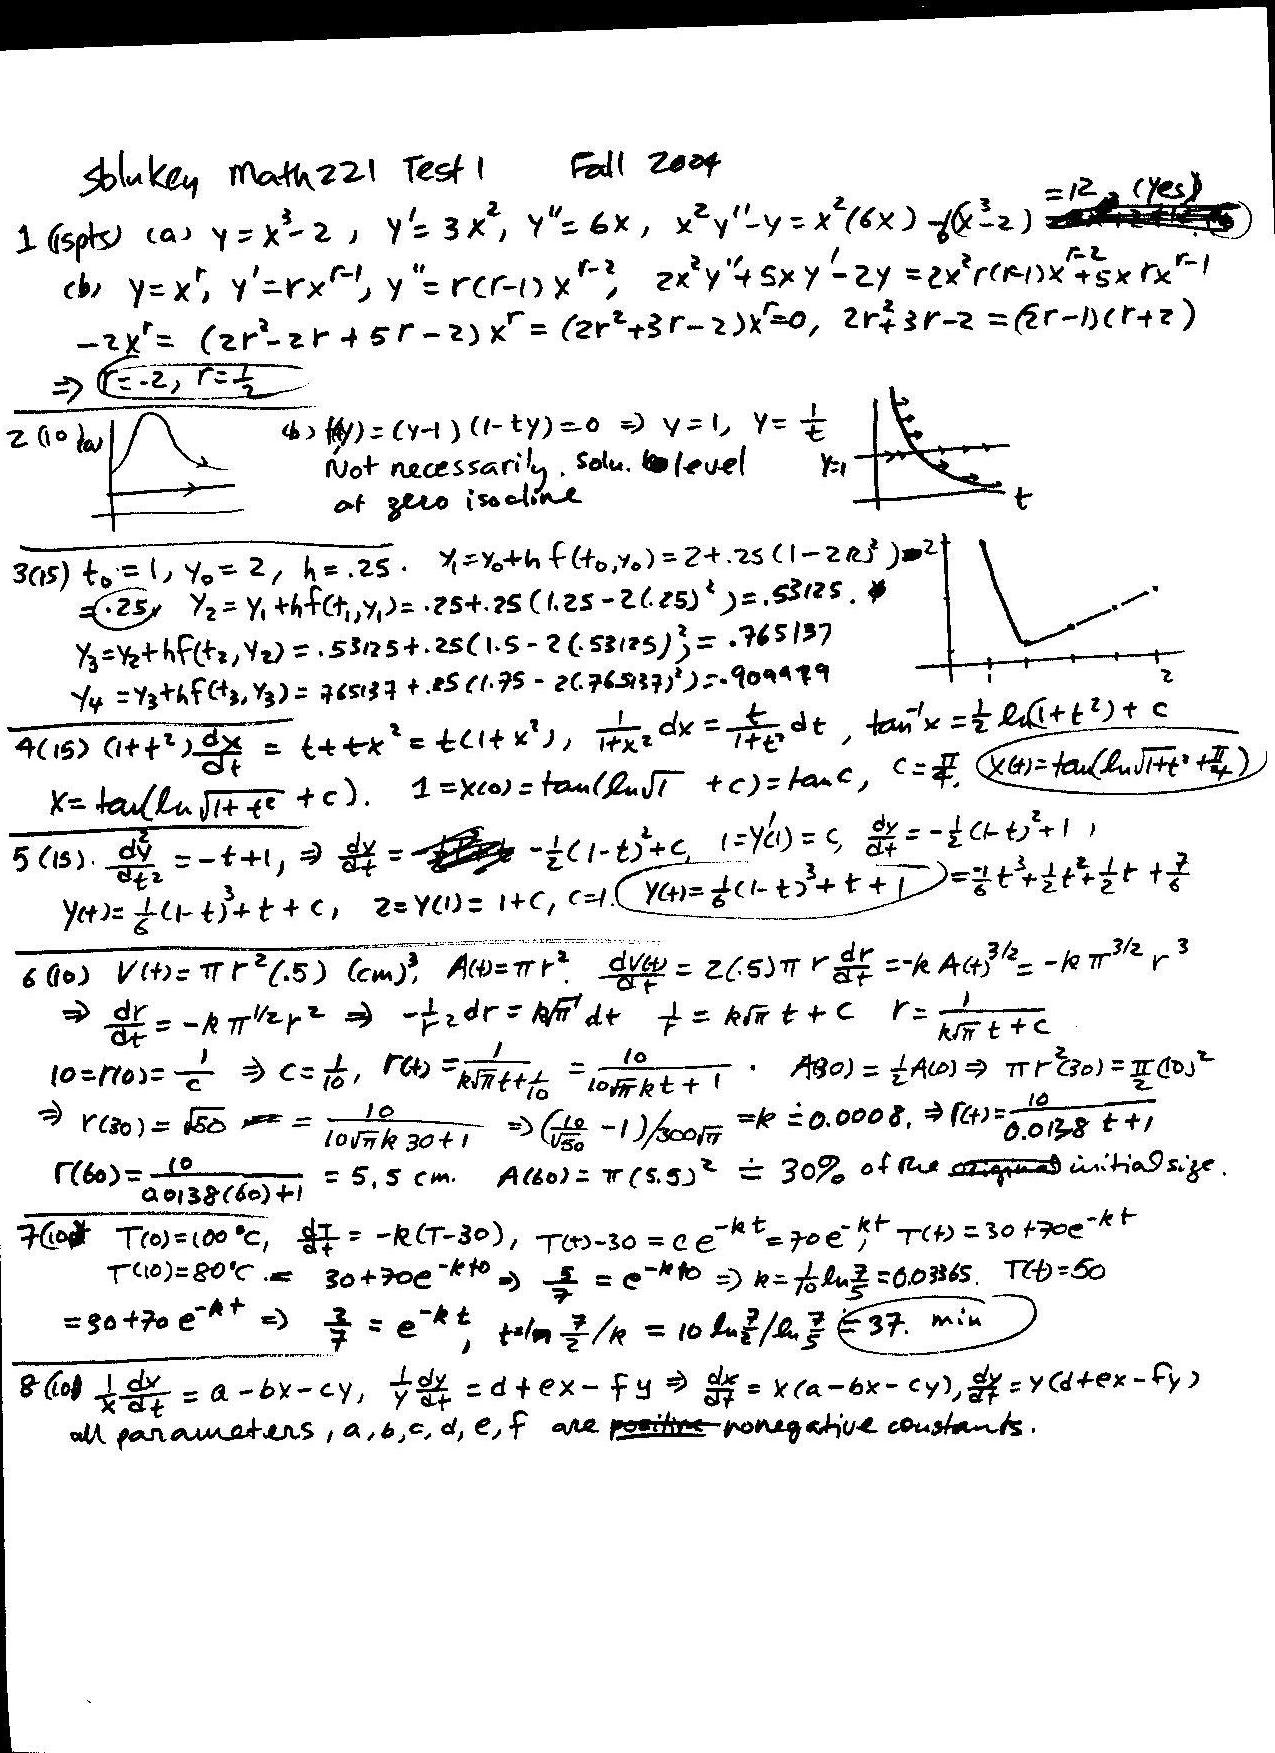 Solu Key Math 221 Test 1 Fall 2004
=12, (Yes)
1 (15pts) (a) y=x³-2, y'=3x², y''=6x, x²y''-y=x²(6x)-6(x³-2)
(b) y=x^r, y'=rx^{r-1}, y''=r(r-1)x^{r-2}, 2x²y''+5xy'-2y=2x²r(r-1)x^{r-2}+5x rx^{r-1}
-2x^r = (2r²-2r+5r-2)x^r = (2r²+3r-2)x^r=0, 2r²+3r-2=(2r-1)(r+2)
⇒ r=-2, r=1/2
2 (10) (a) (b) f(t,y)=(y-1)(1-ty)=0 ⇒ y=1, y=1/t
Not necessarily. Solu. level y=1
at zero isocline t
3(15) t₀=1, y₀=2, h=.25. y₁=y₀+hf(t₀,y₀)=2+.25(1-2(2)²) 2
=.25, y₂=y₁+hf(t₁,y₁)=.25+.25(1.25-2(.25)²)=.53125.
y₃=y₂+hf(t₂,y₂)=.53125+.25(1.5-2(.53125)²)=.765137
y₄=y₃+hf(t₃,y₃)=.765137+.25(1.75-2(.765137)²)=.909979 1 2
4(15) (1+t²)dx/dt = t+tx²=t(1+x²), 1/(1+x²) dx = t/(1+t²) dt, tan⁻¹x=1/2 ln(1+t²)+c
x=tan(ln√(1+t²)+c). 1=x(0)=tan(ln√1+c)=tan c, c=π/4. x(t)=tan(ln√(1+t²)+π/4)
5(15). d²y/dt²=-t+1, ⇒ dy/dt = -1/2(1-t)²+c, 1=y'(1)=c, dy/dt=-1/2(1-t)²+1,
y(t)=1/6(1-t)³+t+c, 2=y(1)=1+c, c=1. y(t)=1/6(1-t)³+t+1 =-1/6t³+1/2t²+1/2t+7/6
6(10) V(t)=πr²(.5) (cm)³, A(t)=πr². dV(t)/dt=2(.5)πr dr/dt=-kA(t)^{3/2}=-kπ^{3/2}r³
⇒ dr/dt=-kπ^{1/2}r² ⇒ -1/r² dr=k√π dt 1/r=k√π t+c r=1/(k√π t+c)
10=r(0)=1/c ⇒ c=1/10, r(t)=1/(k√π t+1/10)=10/(10√π k t+1). A(30)=1/2A(0) ⇒ πr²(30)=π/2(10)²
⇒ r(30)=√50 = 10/(10√π k 30+1) ⇒ (10/√50 -1)/300√π =k≐0.0008, ⇒ r(t)=10/(0.0138 t+1)
r(60)=10/(0.0138(60)+1) = 5.5 cm. A(60)=π(5.5)² ≐ 30% of the initial size.
7(10) T(0)=100°C, dT/dt=-k(T-30), T(t)-30=ce^{-kt}=70e^{-kt}, T(t)=30+70e^{-kt}
T(10)=80°C = 30+70e^{-k10} ⇒ 5/7=e^{-k10} ⇒ k=1/10 ln 7/5=0.03365. T(t)=50
=30+70e^{-kt} ⇒ 2/7=e^{-kt}, t=ln 7/2 /k = 10 ln 7/2 / ln 7/5 ≐ 37. min
8(10) 1/x dx/dt=a-bx-cy, 1/y dy/dt=d+ex-fy ⇒ dx/dt=x(a-bx-cy), dy/dt=y(d+ex-fy)
all parameters, a,b,c,d,e,f are nonegative constants.